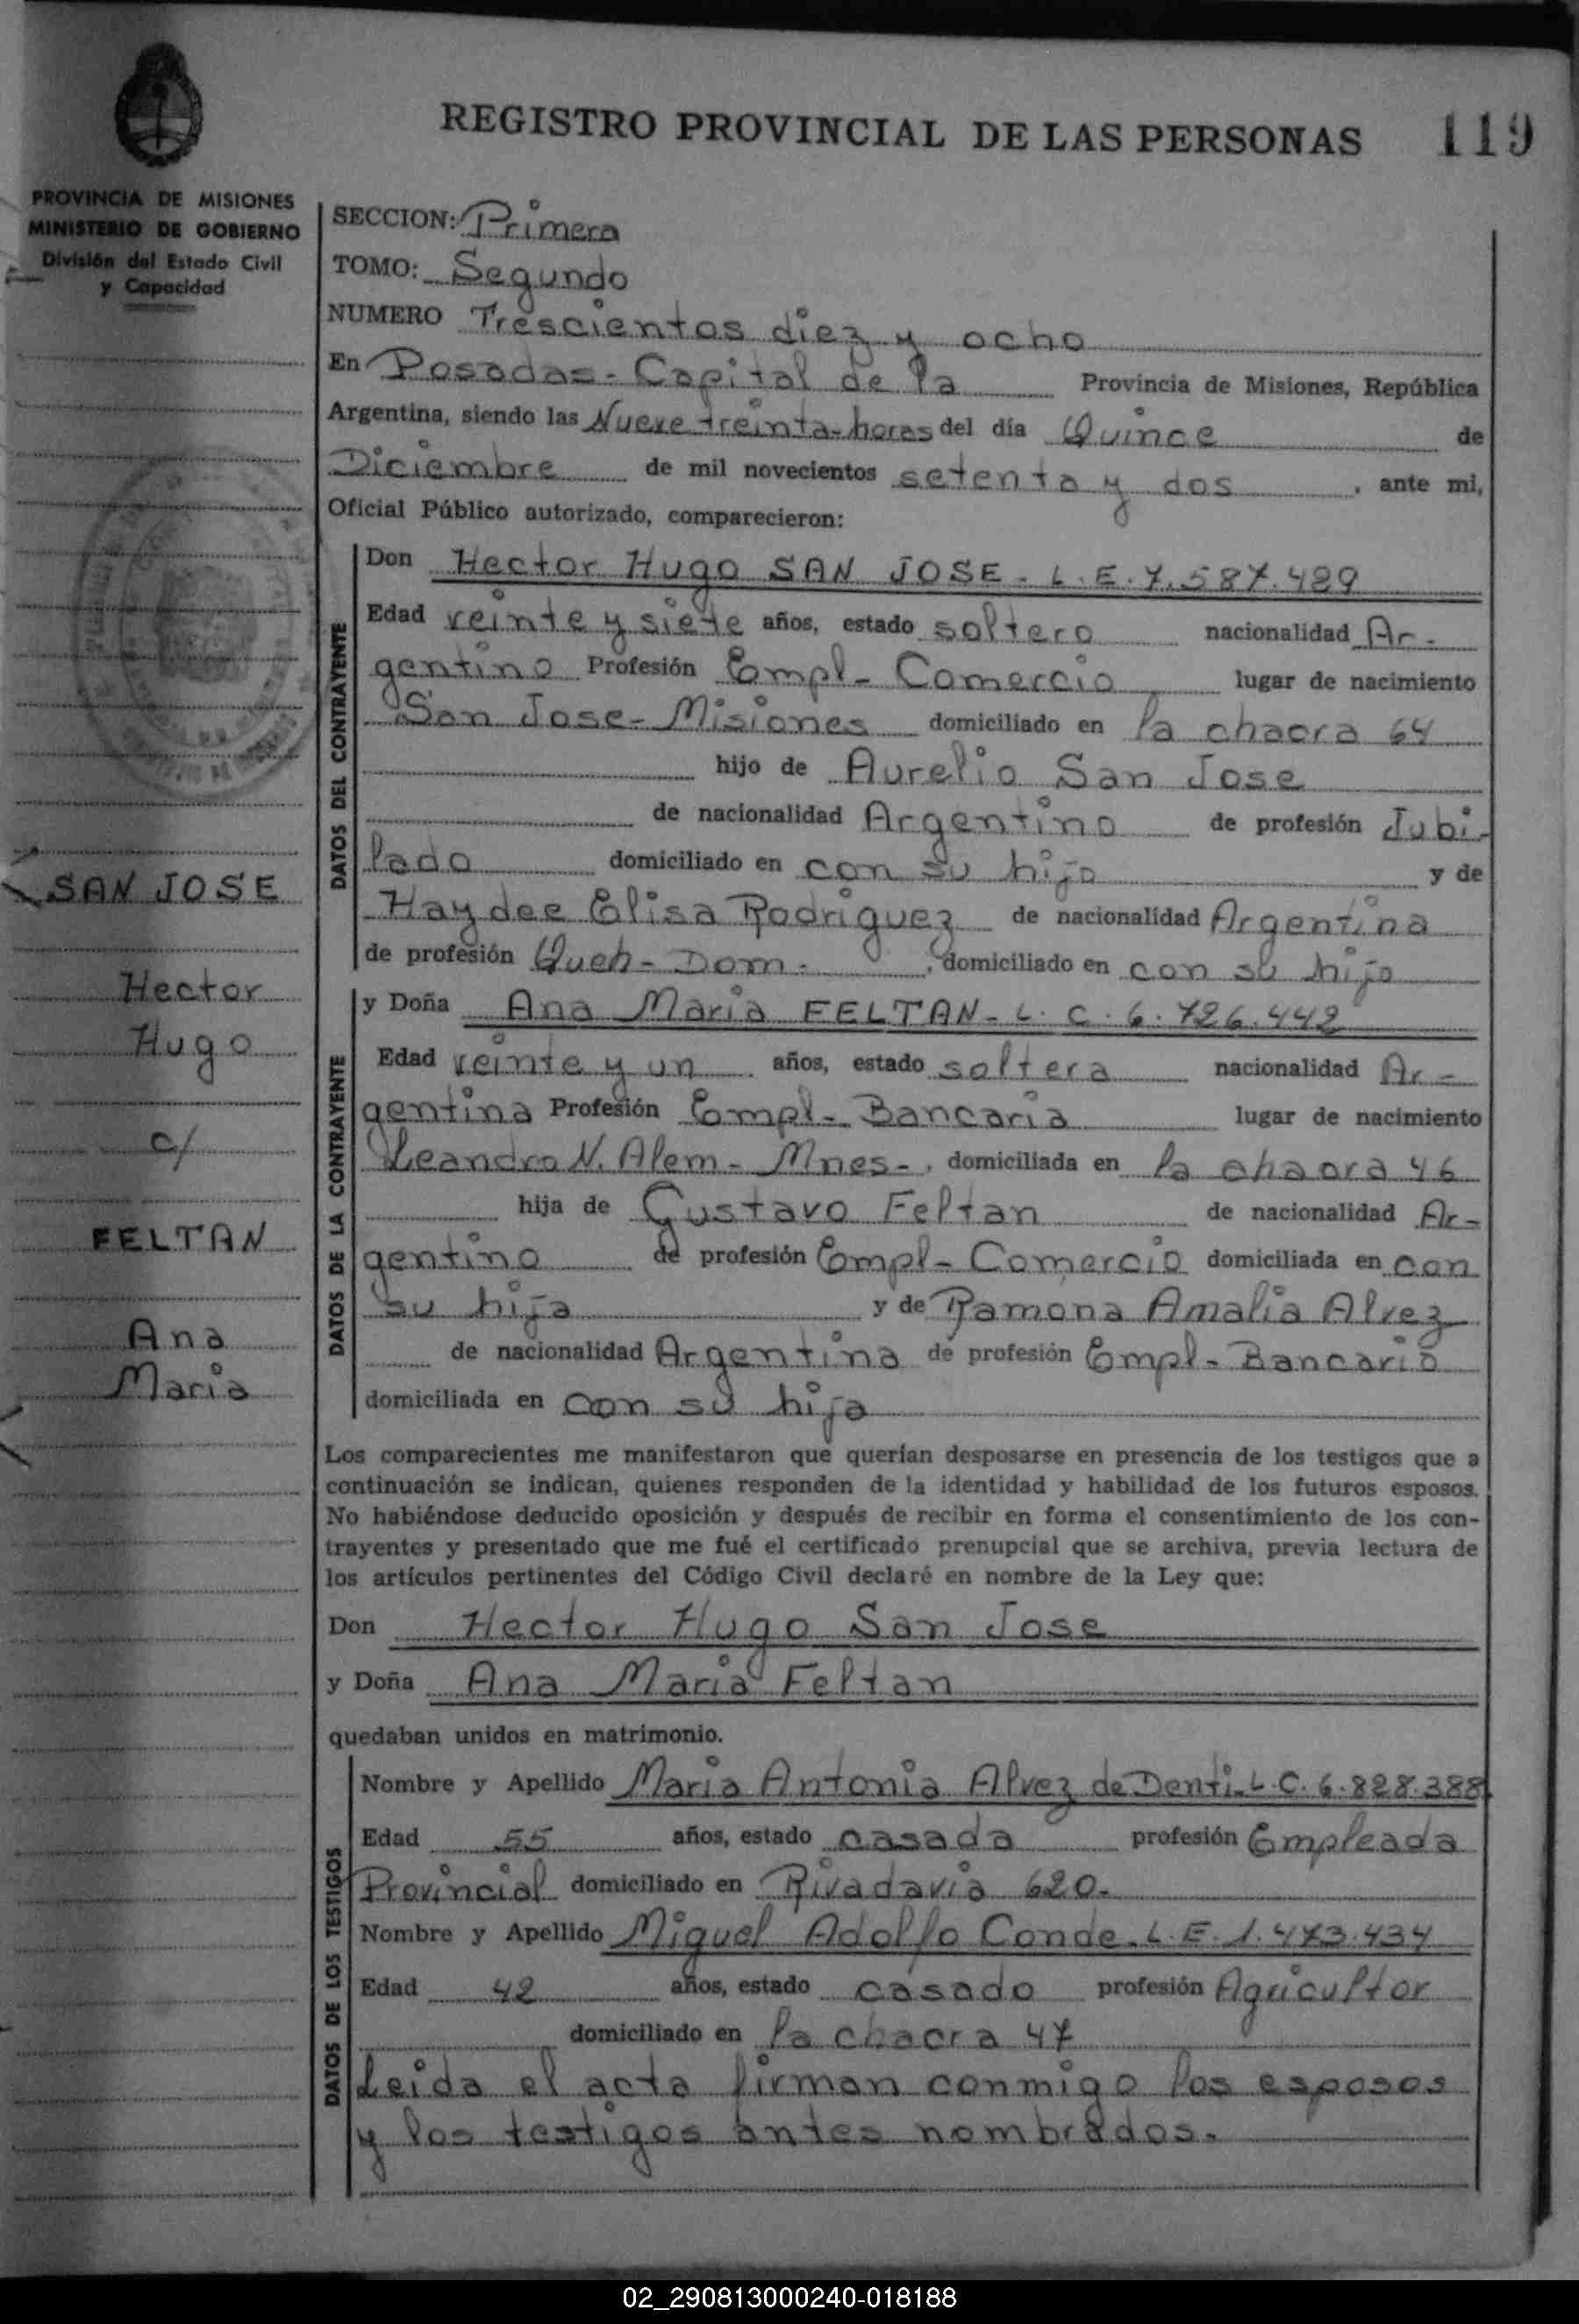 REGISTRO PROVINCIAL DE LAS PERSONAS 119
PROVINCIA DE MISIONES
MINISTERIO DE GOBIERNO
División del Estado Civil
y Capacidad
SECCION: Primera
TOMO: Segundo
NUMERO Trescientos diez y ocho
En Posadas - Capital de la Provincia de Misiones, República
Argentina, siendo las Nueve treinta - horas del día Quince de
Diciembre de mil novecientos setenta y dos, ante mi,
Oficial Público autorizado, comparecieron:
DATOS DEL CONTRAYENTE
Don Hector Hugo SAN JOSE - L.E. 7.587.489
Edad veinte y siete años, estado soltero nacionalidad Ar-
gentino Profesión Empl - Comercio lugar de nacimiento
San Jose - Misiones domiciliado en la chacra 64
hijo de Aurelio San Jose
de nacionalidad Argentino de profesión Jubi-
lado domiciliado en con su hijo y de
Haydee Elisa Rodriguez de nacionalidad Argentina
de profesión Queh - Dom -, domiciliado en con su hijo
SAN JOSE
Hector
Hugo
c/
FELTAN
Ana
Maria
DATOS DE LA CONTRAYENTE
y Doña Ana Maria FELTAN - L.C. 6.726.442
Edad veinte y un años, estado soltera nacionalidad Ar-
gentina Profesión Empl - Bancaria lugar de nacimiento
Leandro N. Alem - Mnes -, domiciliada en la chacra 46
hija de Gustavo Feltan de nacionalidad Ar-
gentino de profesión Empl - Comercio domiciliada en con
su hija y de Ramona Amalia Alvez
de nacionalidad Argentina de profesión Empl - Bancario
domiciliada en con su hija
Los comparecientes me manifestaron que querían desposarse en presencia de los testigos que a
continuación se indican, quienes responden de la identidad y habilidad de los futuros esposos.
No habiéndose deducido oposición y después de recibir en forma el consentimiento de los con-
trayentes y presentado que me fué el certificado prenupcial que se archiva, previa lectura de
los artículos pertinentes del Código Civil declaré en nombre de la Ley que:
Don Hector Hugo San Jose
y Doña Ana Maria Feltan
quedaban unidos en matrimonio.
DATOS DE LOS TESTIGOS
Nombre y Apellido Maria Antonia Alvez de Denti - L.C. 6.828.388
Edad 55 años, estado casada profesión Empleada
Provincial domiciliado en Rivadavia 620.
Nombre y Apellido Miguel Adolfo Conde - L.E. 1.473.434
Edad 42 años, estado casado profesión Agricultor
domiciliado en la chacra 47
Leida el acta firman conmigo los esposos
y los testigos antes nombrados.
02_290813000240-018188